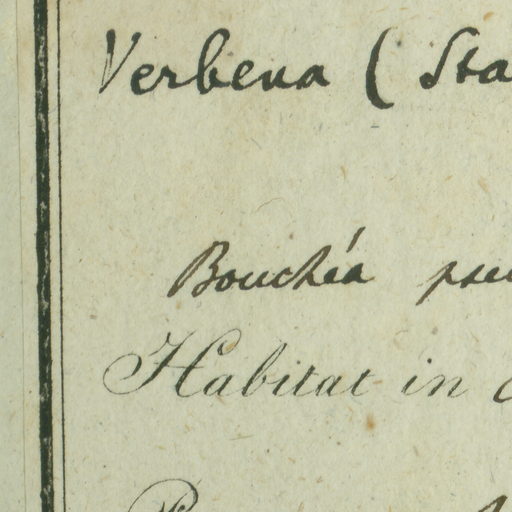 Verbena ( Sta
Bouchéa pseu
Habitat in